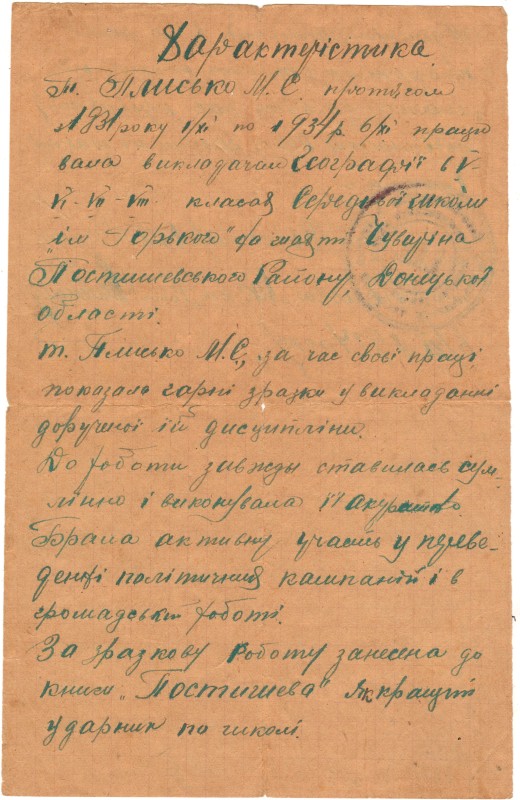 Характерістика
т. Плисько М.С. протягом
1931 року 1/XI по 1934 р. 6/XI працю
вала викладачем Географії в V-
VI-VII-VIII класах Середньої школи
ім "Горького" на шахті Чувиріна
"Постишевського Району, Донецької
області.
т. Плисько М.С., за час свої праці,
показала гарні зразки у викладанні
дорученої ій дисципліни.
До роботи завжды ставилась сум-
лінно і виконувала її акуратно.
Брала активну участь у переве-
денні політичних кампаній і в
громадській роботі.
За зразкову роботу занесена до
книги "Постишева" як кращий
ударник по школі.